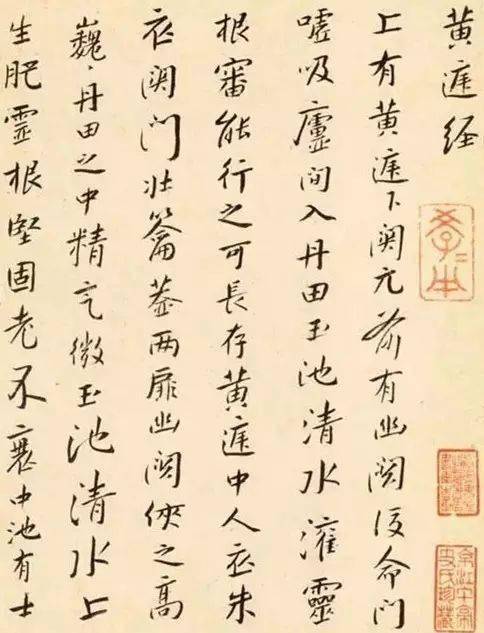 黄庭经
上有黄庭下関元前有幽闕後命門
嘘吸廬間入丹田玉池清水灌靈
根審能行之可長存黄庭中人衣朱
衣関門壮籥蓋两扉幽闕俠之髙
巍丶丹田之中精气微玉池清水上
生肥靈根堅固老不衰中池有士